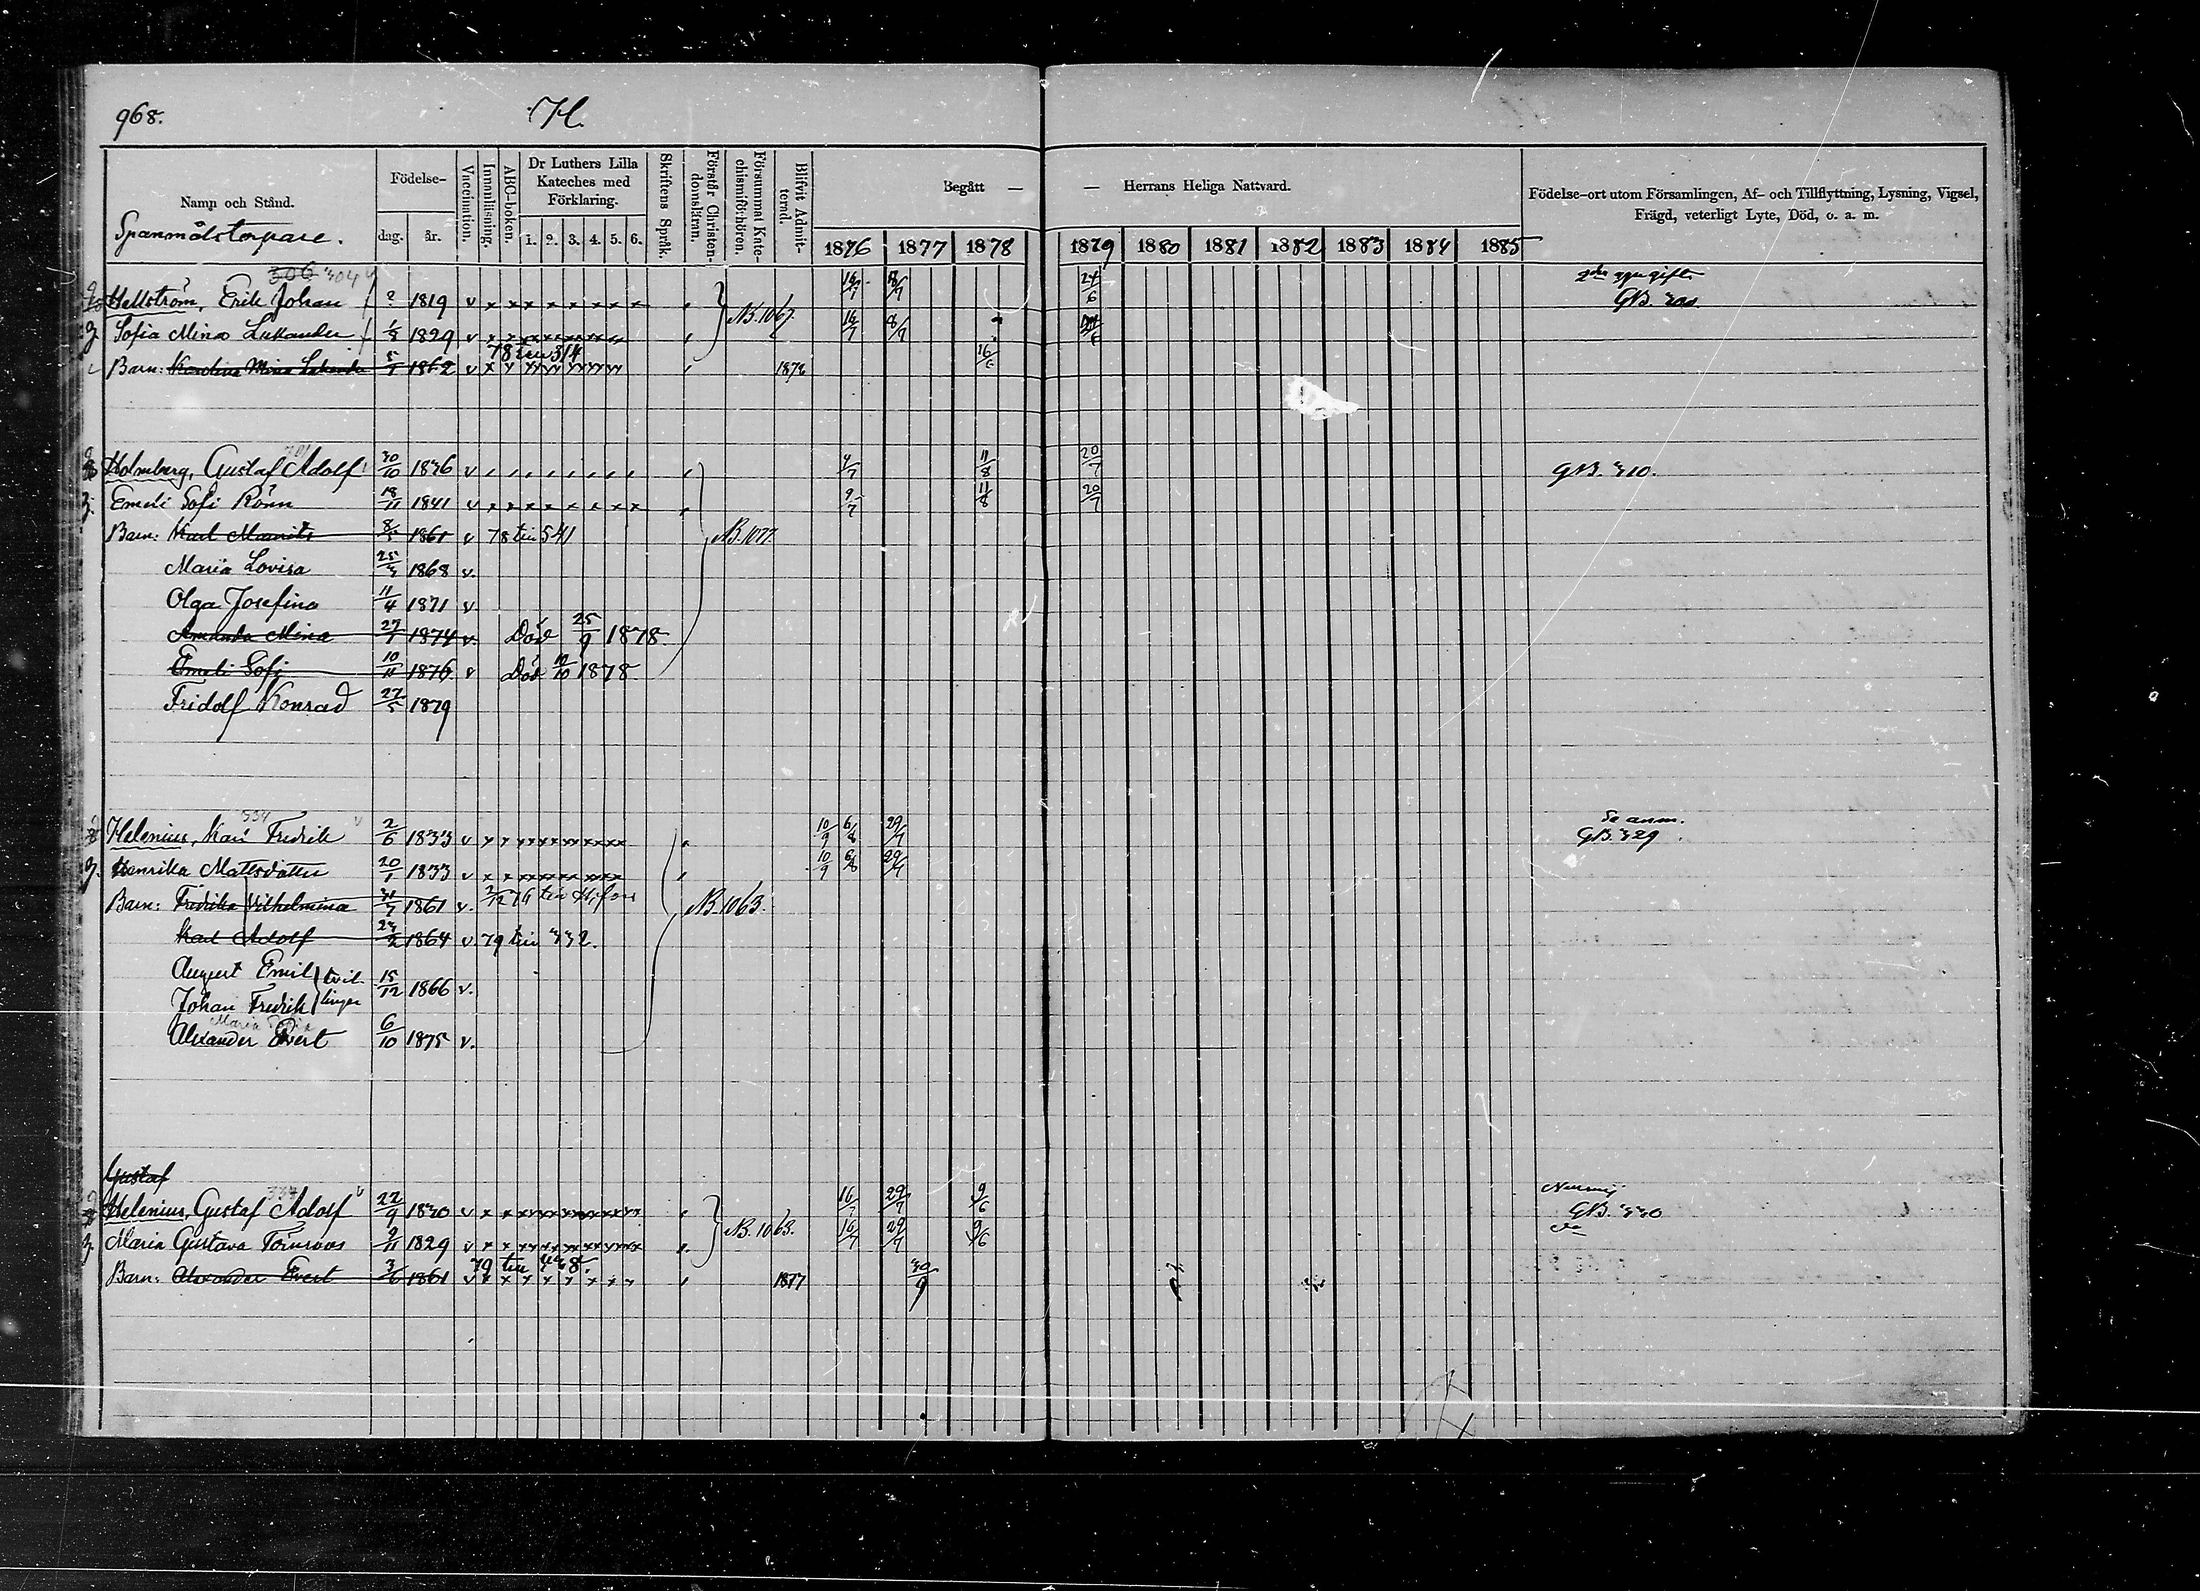 968.
H.
Namn och Stånd.
Födelse-
dag.
år.
Vaccination.
Innanläsning.
ABC-boken.
Dr Luthers Lilla
Kateches med
Förklaring.
1. 2. 3. 4. 5. 6.
Skriftens Språk.
Förstår Christen-
domsläran.
Försummat Kate-
chismiförhören.
Blifvit Admit-
terad.
Begått —
— Herrans Heliga Nattvard.
1876 1877 1878 1879 1880 1881 1882 1883 1884 1885
Födelse-ort utom Församlingen, Af- och Tillflyttning, Lysning, Vigsel,
Frägd, veterligt Lyte, Död, o. a. m.
Spanmålstorpare.
306 304
Hellström, Erik Johan ? 1819 v 16/7 8/7 24/6
Sofia Mina 1829 v N.B. 1067. 16/7 8/7
78 till 314
Barn: Karolina Mina 1862 v 1878 16/6
701
Holmberg, Gustaf Adolf 30/10 1836 v 4/7 11/8 20/7 GB. 310.
Emeli Sofi Rönn 18/11 1841 v 9/7 11/8 20/7
Barn: Karl Mauritz 1861 v 78 till 541 N.B. 1077.
Maria Lovisa 25/3 1868 v.
Olga Josefina 11/4 1871 v
Amanda Mina 27/1 1874 v. Död 25/9 1878.
Emeli Sofi 10/11 1876 v Död 1878.
Fridolf Konrad 27/5 1879
334
Helenius, Karl Fredrik 2/6 1833 v 10/9 6/8 29/7 Se anm.
GB. 329.
Henrika Mattsdotter 20/1 1833 v 10/9 6/8 29/7
Barn: Fredrika Vilhelmina 31/7 1861 v. 2/12 76 till H:fors N.B. 1063.
Karl Adolf 23/2 1864 v 79 till 332.
August Emil } tvil-
Johan Fredrik } lingar 15/12 1866 v.
Maria Sofia
Alexander Evert 6/10 1875 v.
Gustaf
337
Helenius, Gustaf Adolf 22/9 1830 v 16/7 29/7 9/6
GB. 330
Maria Gustava Törnroos 9/11 1829 v N.B. 1063. 16/7 29/7 9/6
79 till 438.
Barn: Alexander Evert 3/6 1861 v 1877 30/9